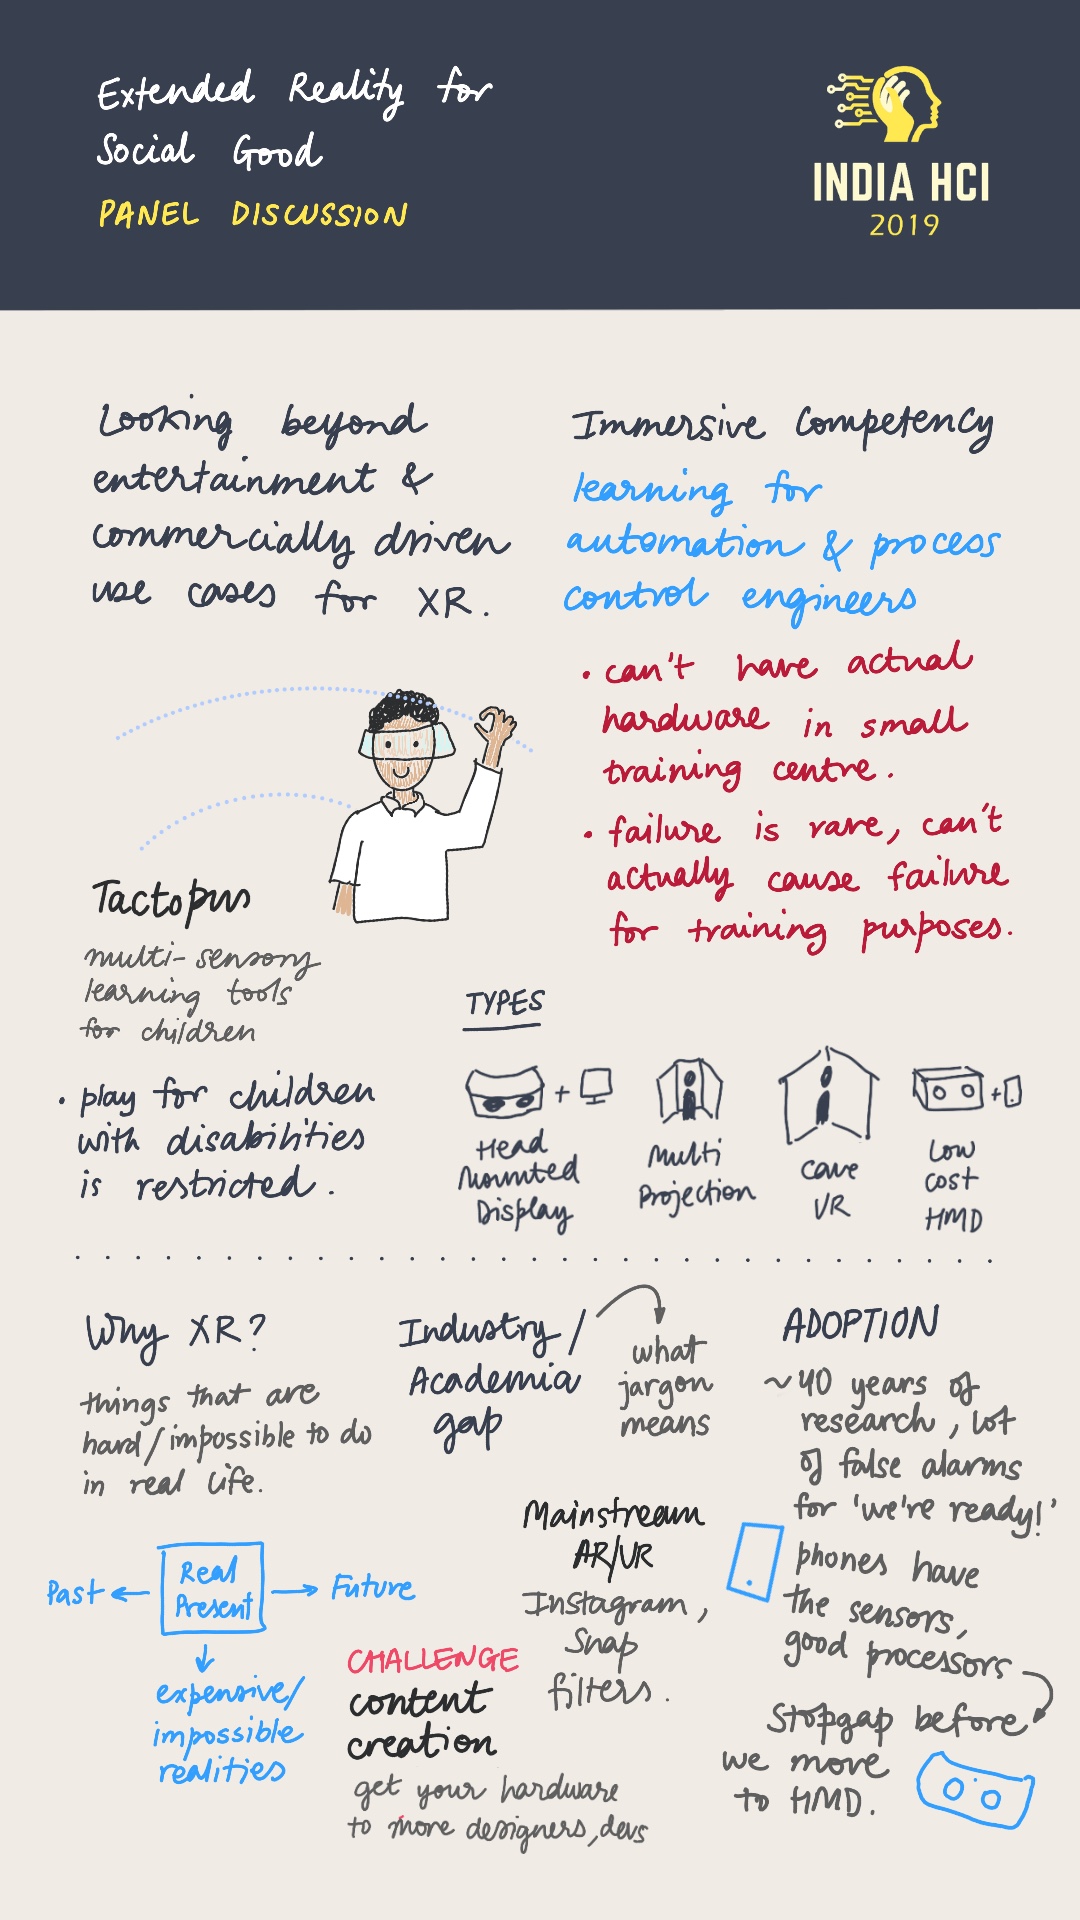 Extended Reality for
Social Good
PANEL DISCUSSION
INDIA HCI
2019
Looking beyond
entertainment &
commercially driven
use cases for XR.
Immersive Competency
learning for
automation & process
control engineers
• can't have actual
hardware in small
training centre.
• failure is rare, can't
actually cause failure
for training purposes.
Tactopus
multi-sensory
learning tools
for children
• play for children
with disabilities
is restricted.
TYPES
+
Head
Mounted
Display
Multi
Projection
Cave
VR
+
Low
cost
HMD
Why XR?
things that are
hard/impossible to do
in real life.
Past ← Real
Present → Future
↓
expensive/
impossible
realities
Industry/
Academia
gap
what
jargon
means
Mainstream
AR/VR
Instagram,
Snap
filters.
CHALLENGE
content
creation
get your hardware
to more designers, devs
ADOPTION
~40 years of
research, lot
of false alarms
for 'we're ready!'
phones have
the sensors,
good processors
Stopgap before
we move
to HMD.